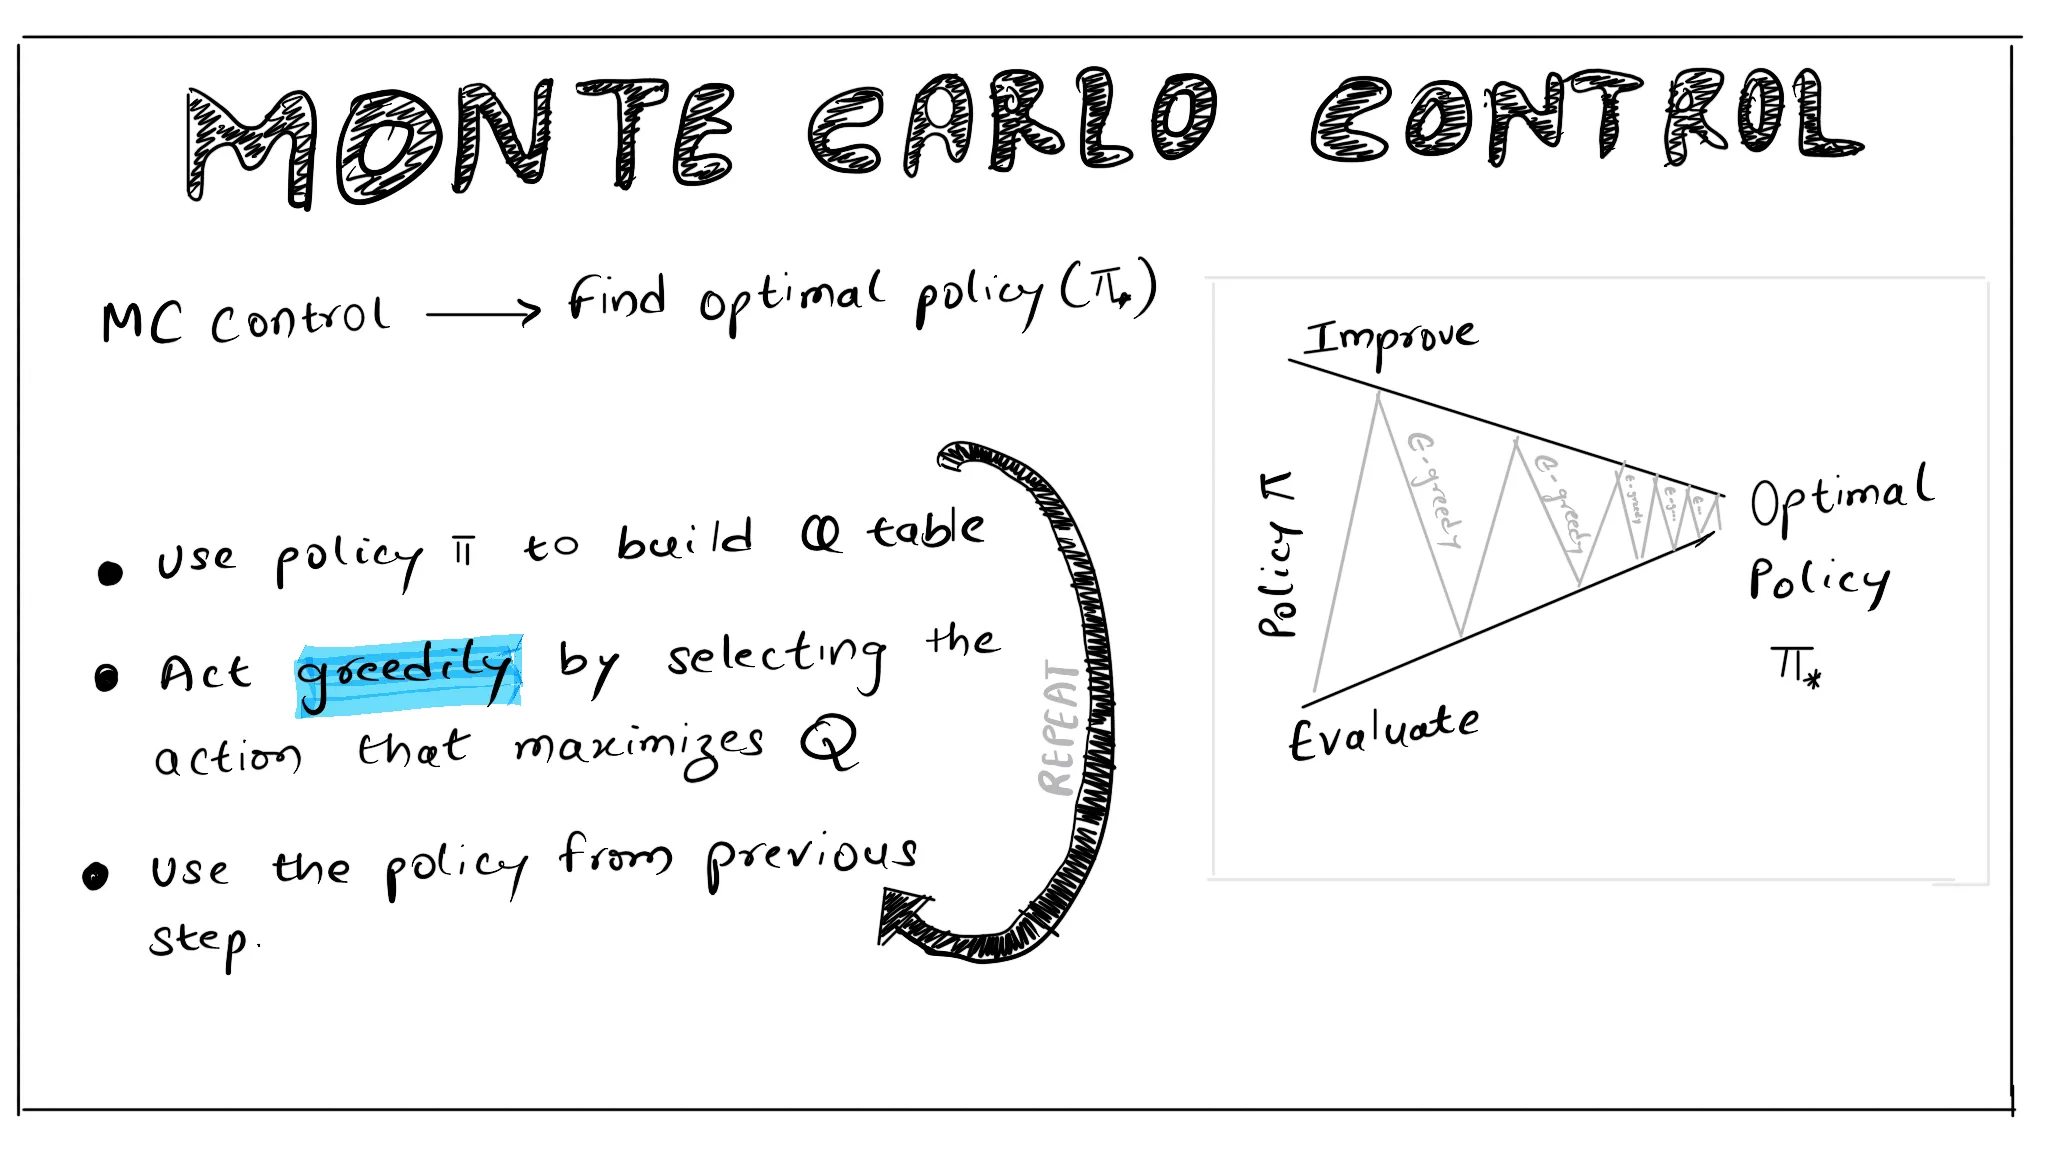 MONTE CARLO CONTROL
MC Control → Find optimal policy (π*)
• Use policy π to build Q table
• Act greedily by selecting the
action that maximizes Q
• Use the policy from previous
step.
REPEAT
Improve
Policy π
ϵ-greedy
ϵ-greedy
ϵ-greedy
ϵ-g...
ϵ...
Evaluate
Optimal
Policy
π*